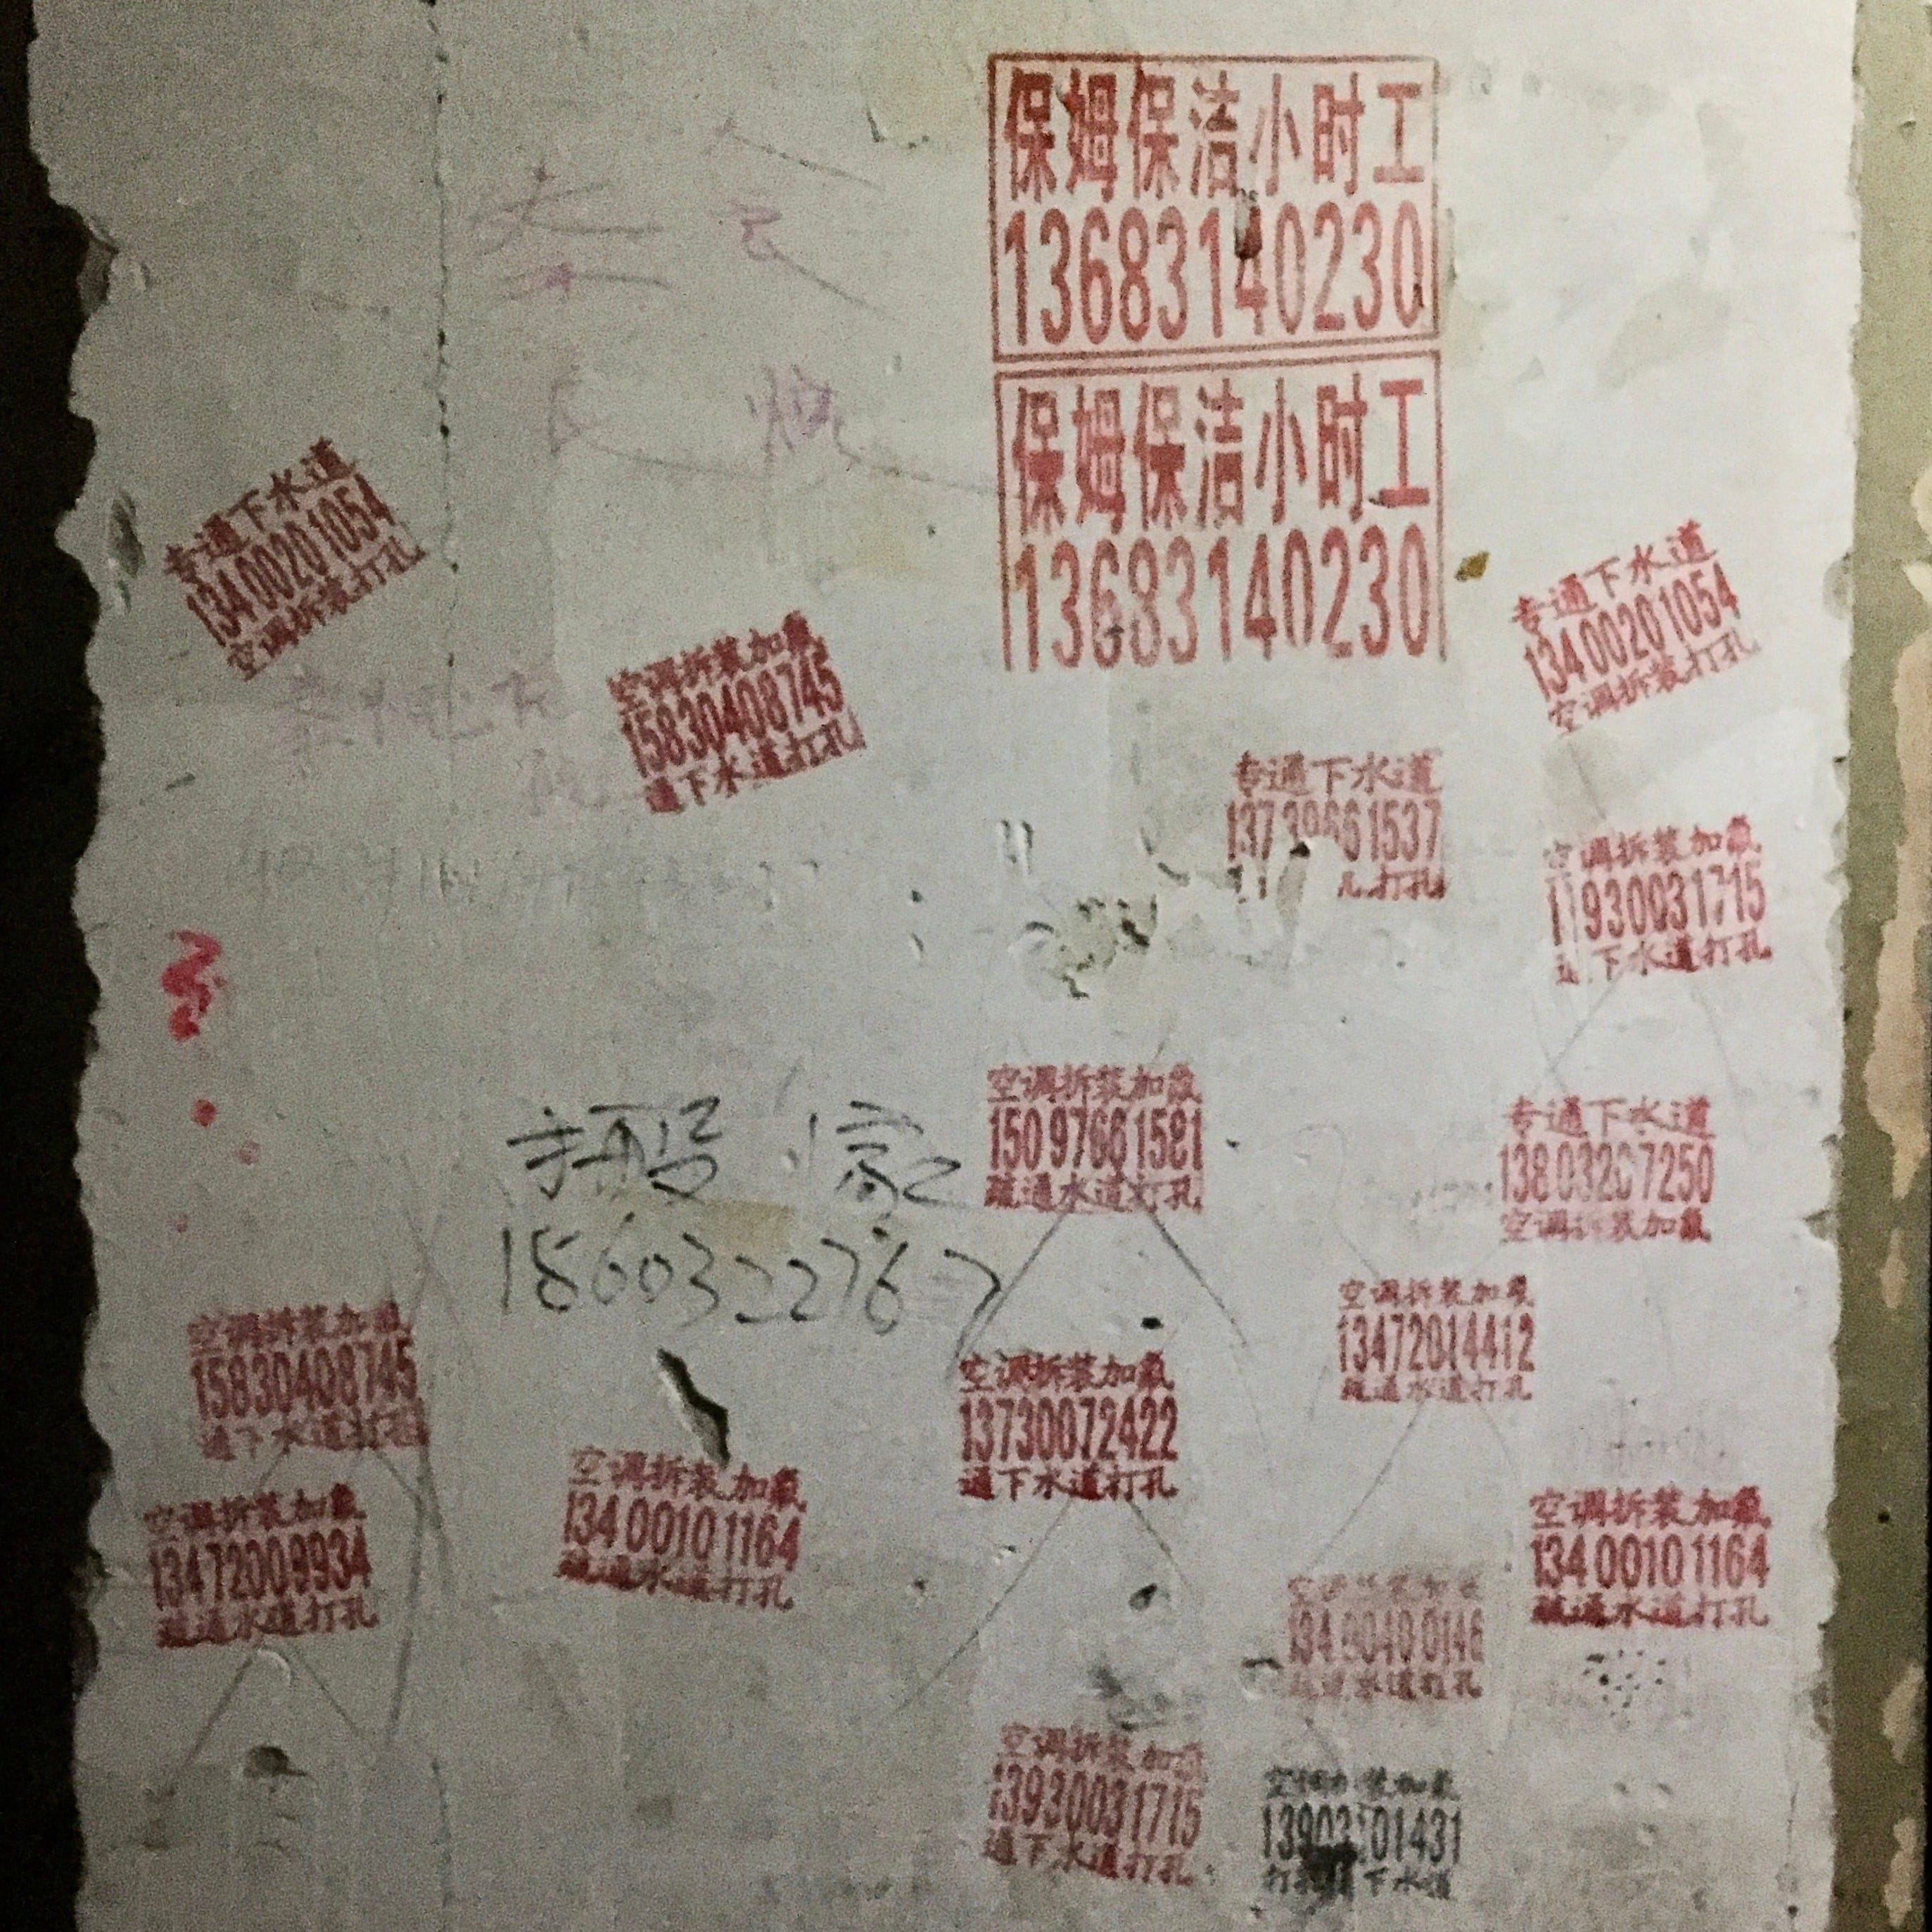 保姆保洁小时工
13683140230
保姆保洁小时工
13683140230
专通下水道
134 0020 1054
空调拆装打孔
专通下水道
134 0020 1054
空调拆装打孔
空调拆装加氟
15830408745
通下水道打孔
专通下水道
1537
打孔
空调拆装加氟
930031715
下水道打孔
空调拆装加氟
150 9766 1581
疏通水道打孔
专通下水道
空调拆装加氟
1860322767
空调拆装加氟
13472014412
疏通水道打孔
空调拆装加氟
15830408745
通下水道打孔
空调拆装加氟
13730072422
通下水道打孔
空调拆装加氟
134 0010 1164
疏通水道打孔
空调拆装加氟
13472009934
疏通水道打孔
空调拆装加氟
134 0010 1164
疏通水道打孔
空调拆装加氟
疏通水道打孔
空调拆装加氟
13930031715
通下水道打孔
下水道